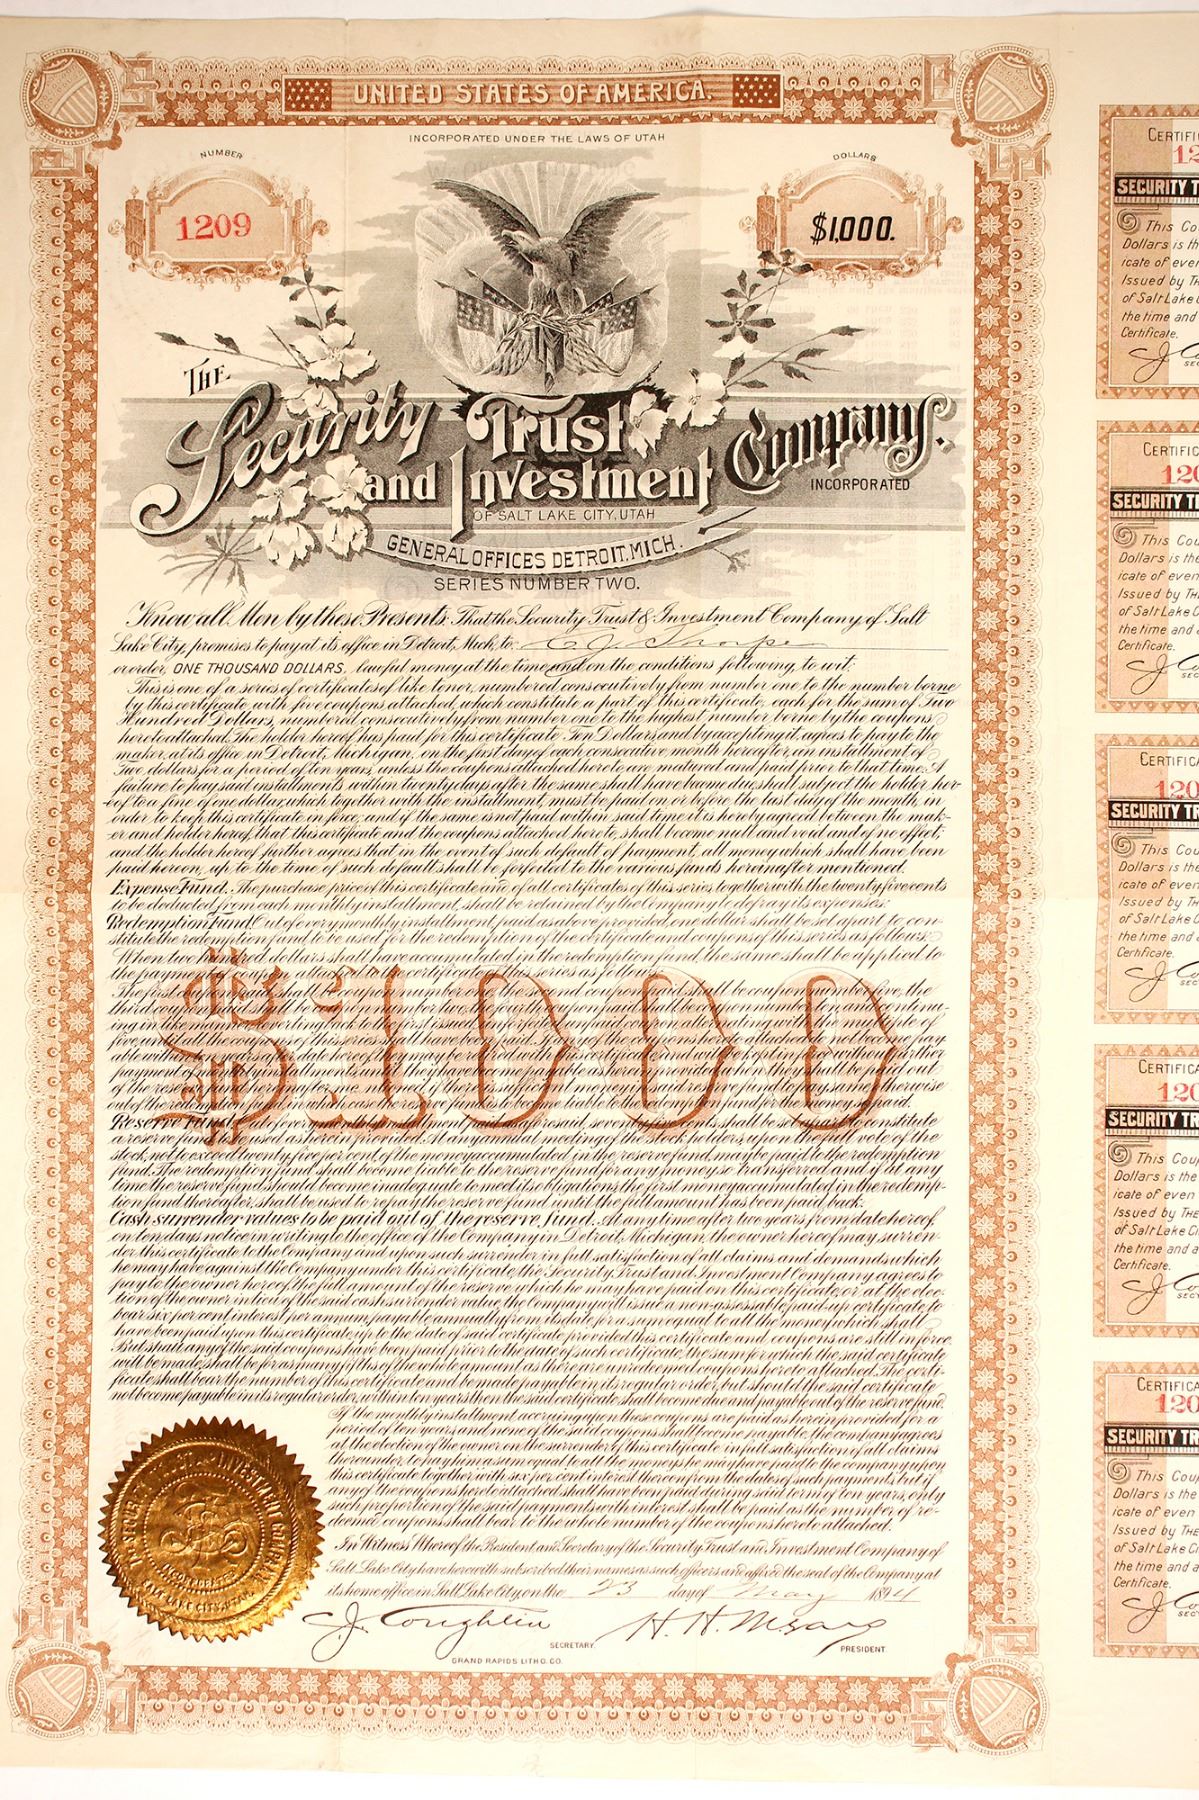 UNITED STATES OF AMERICA.
INCORPORATED UNDER THE LAWS OF UTAH
NUMBER
1209
DOLLARS
$1,000.
THE
Security Trust Company.
and Investment
INCORPORATED
OF SALT LAKE CITY, UTAH
GENERAL OFFICES DETROIT, MICH.
SERIES NUMBER TWO.
Know all Men by these Presents, That the Security Trust & Investment Company, of Salt
Lake City, promises to pay at its office in Detroit, Mich, to
or order, ONE THOUSAND DOLLARS, lawful money at the time and on the conditions following, to wit:
This is one of a series of certificates of like tenor, numbered consecutively from number one to the number borne
by this certificate, with five coupons attached, which constitute a part of this certificate, each for the sum of Two
Hundred Dollars, numbered consecutively from number one to the highest number borne by the coupons
hereto attached. The holder hereof has paid for this certificate Ten Dollars, and by accepting it, agrees to pay to the
maker, at its office in Detroit, Michigan, on the first day of each consecutive month hereafter, an installment of
Two dollars for a period of ten years, unless the coupons attached hereto are matured and paid prior to that time. A
failure to pay said installments within twenty days after the same shall have become due, shall subject the holder her-
eof to a fine of one dollar, which together with the installment, must be paid on or before the last day of the month, in
order to keep this certificate in force, and if the same is not paid within said time it is hereby agreed between the mak-
er and holder hereof, that this certificate and the coupons attached hereto, shall become null and void and of no effect,
and the holder hereof further agrees that in the event of such default of payment, all money which shall have been
paid hereon, up to the time of such default shall be forfeited to the various funds hereinafter mentioned.
Expense Fund. The purchase price of this certificate and of all certificates of this series, together with the twenty five cents
to be deducted from each monthly installment, shall be retained by the Company to defray its expenses.
Redemption Fund. Out of every monthly installment paid as above provided, one dollar shall be set apart to con-
stitute the redemption fund, to be used for the redemption of the certificate and coupons of this series as follows:
When two hundred dollars shall have accumulated in the redemption fund, the same shall be applied to
the payment of coupon attached to the certificates of this series as follows:
The first coupon paid, shall be coupon number one, the second coupon paid shall be coupon number five, the
third coupon paid shall be coupon number two, the fourth coupon paid shall be coupon number ten, and continu-
ing in like manner reverting back to the first issued, unforfeited, unpaid coupon, alternating with the multiple of
five, until all the coupons of this series shall have been paid. If any of the coupons hereto attached do not become pay
able within ten years after date hereof they may be retired with this certificate and will be kept in force without further
payment of monthly installments, until they have become payable as herein provided, when they shall be paid out
of the reserve fund hereinafter mentioned, if there is sufficient money in said reserve fund to pay same, otherwise
out of the redemption fund, in which case the reserve fund is to become liable to the redemption fund for the money so paid.
$1000
Reserve Fund. Out of every monthly installment paid as aforesaid, seventy five cents shall be set apart to constitute
a reserve fund to be used as herein provided. At any annual meeting of the stock holders, upon the full vote of the
stock, not to exceed twenty five per cent, of the money accumulated in the reserve fund, may be paid to the redemption
fund. The redemption fund shall become liable to the reserve fund for any money so transferred and if at any
time the reserve fund should become inadequate to meet its obligations, the first money accumulated in the redemp-
tion fund thereafter, shall be used to repay the reserve fund until the full amount has been paid back.
Cash surrender values to be paid out of the reserve fund. At any time after two years from date hereof,
on ten days notice in writing to the office of the Company in Detroit, Michigan, the owner hereof may surren-
der this certificate to the Company and upon such surrender in full satisfaction of all claims and demands which
he may have against the Company under this certificate, the Security Trust and Investment Company agrees to
pay to the owner hereof the full amount of the reserve which he may have paid on this certificate, or at the elec-
tion of the owner in lieu of the said cash surrender value, the Company will issue a non-assessable paid-up certificate, to
bear six per cent interest per annum, payable annually from its date for a sum equal to all the money which shall
have been paid upon this certificate, up to the date of said certificate provided this certificate and coupons are still in force.
But shall any of the said coupons have been paid prior to the date of such certificate, the sum for which the said certificate
will be made, shall be for as many fifths of the whole amount as there are unredeemed coupons hereto attached. The certi-
ficate shall bear the number of this certificate and be made payable in its regular order, but should the said certificate
not become payable in its regular order, within ten years then the said certificate shall become due and payable out of the reserve fund.
If the monthly installment accruing upon these coupons are paid as herein provided for a
period of ten years, and none of the said coupons shall become payable, the company agrees
at the election of the owner on the surrender of this certificate in full satisfaction of all claims
thereunder, to pay him a sum equal to all the moneys he may have paid to the company upon
this certificate together with six per cent interest thereon from the dates of such payments, but if
any of the coupons hereto attached shall have been paid during said term of ten years, only
such proportion of the said payments with interest shall be paid as the number of re-
deemed coupons shall bear to the whole number of the coupons hereto attached.
In Witness Whereof the President and Secretary of the Security Trust and Investment Company of
Salt Lake City have herewith subscribed their names as such officers and affixed the seal of the Company at
its home office in Salt Lake City on the 23 day of May 1894
J. Coughlin
SECRETARY.
PRESIDENT
GRAND RAPIDS LITHO. CO.
INCORPORATED
SALT LAKE CITY, UTAH.
CERTIFIC
SECURITY T
This Co
Dollars is th
icate of ever
Issued by TH
of Salt Lake C
the time and
Certificate.
SEC
CERTIFIC
120
SECURITY TR
This Cou
Dollars is the
icate of even
Issued by TH
of Salt Lake C
the time and
Certificate.
SEC
CERTIFICA
120
SECURITY TR
This Cou
Dollars is the
icate of even
Issued by TH
of Salt Lake C
the time and
Certificate.
SEC
CERTIFICA
120
SECURITY TR
This Coup
Dollars is the
icate of even
Issued by THE
of Salt Lake Ci
the time and a
Certificate.
SECY
CERTIFICA
120
SECURITY TR
This Cou
Dollars is the
icate of even
Issued by THE
of Salt Lake Ci
the time and a
Certificate.
SEC